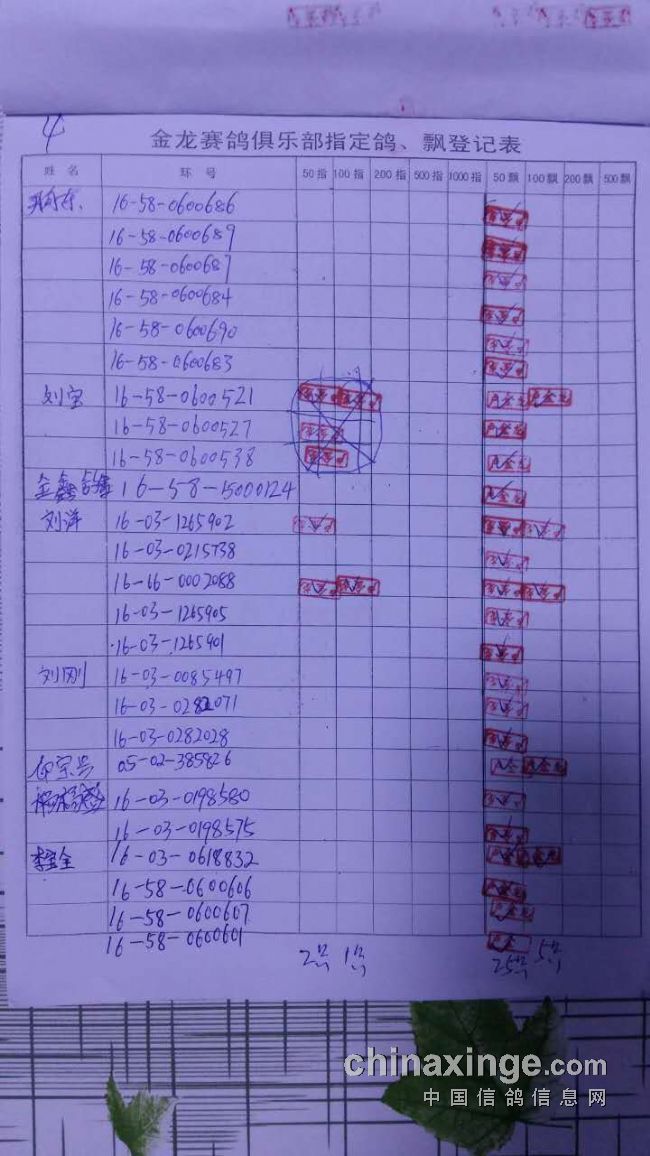 4
金龙赛鸽俱乐部指定鸽、飘登记表
姓 名 环 号 50指 100指 200指 500指 1000指 50飘 100飘 200飘 500飘
16-58-0600686
16-58-0600689
16-58-0600687
16-58-0600684
16-58-0600690
16-58-0600683
刘宝 16-58-0600521
16-58-0600527
16-58-0600538
金鑫 16-58-5000124
刘洋 16-03-1265902
16-03-0215738
16-66-0002088
16-03-1265905
16-03-1265901
刘刚 16-03-0085497
16-03-0282071
16-03-0282028
05-02-385826
16-03-0198580
16-03-0198575
李金 16-03-0618832
16-58-0600606
16-58-0600607
16-58-0600601
chinaxinge.com
中国信鸽信息网